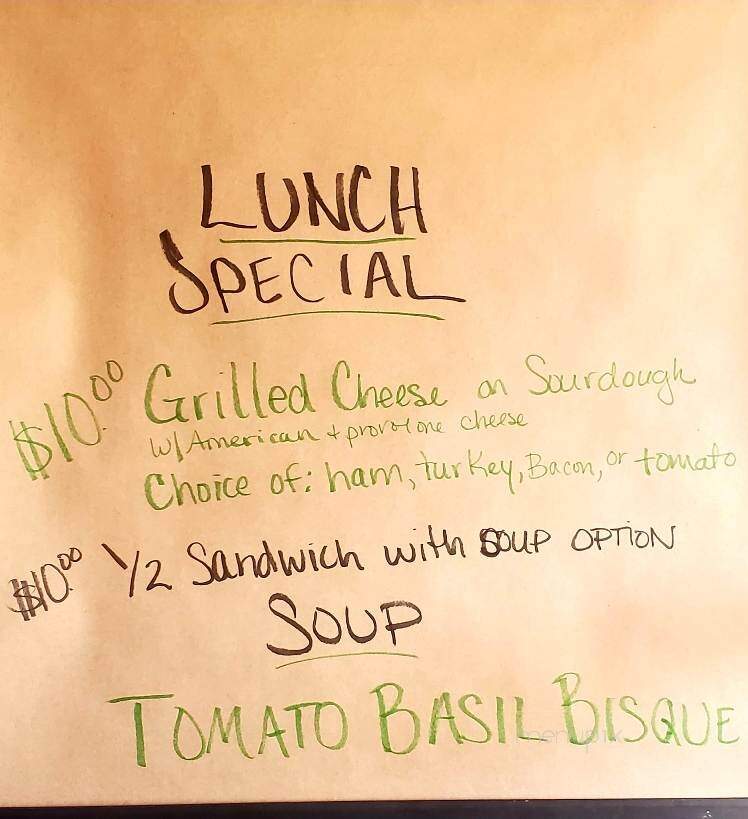 LUNCH
SPECIAL
$10.00 Grilled Cheese on Sourdough
w/ American + provolone cheese
Choice of: ham, turkey, Bacon, or tomato
$10.00 1/2 Sandwich with SOUP OPTION
SOUP
TOMATO BASIL BISQUE